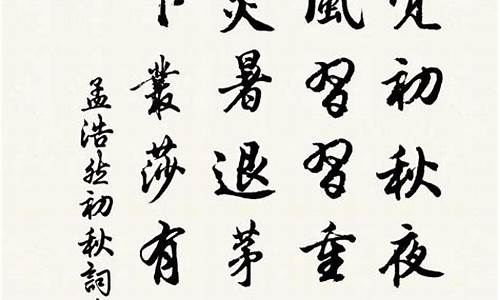 初秋夜
風習習重
炎暑退茅
叢莎有
孟浩然初秋詞